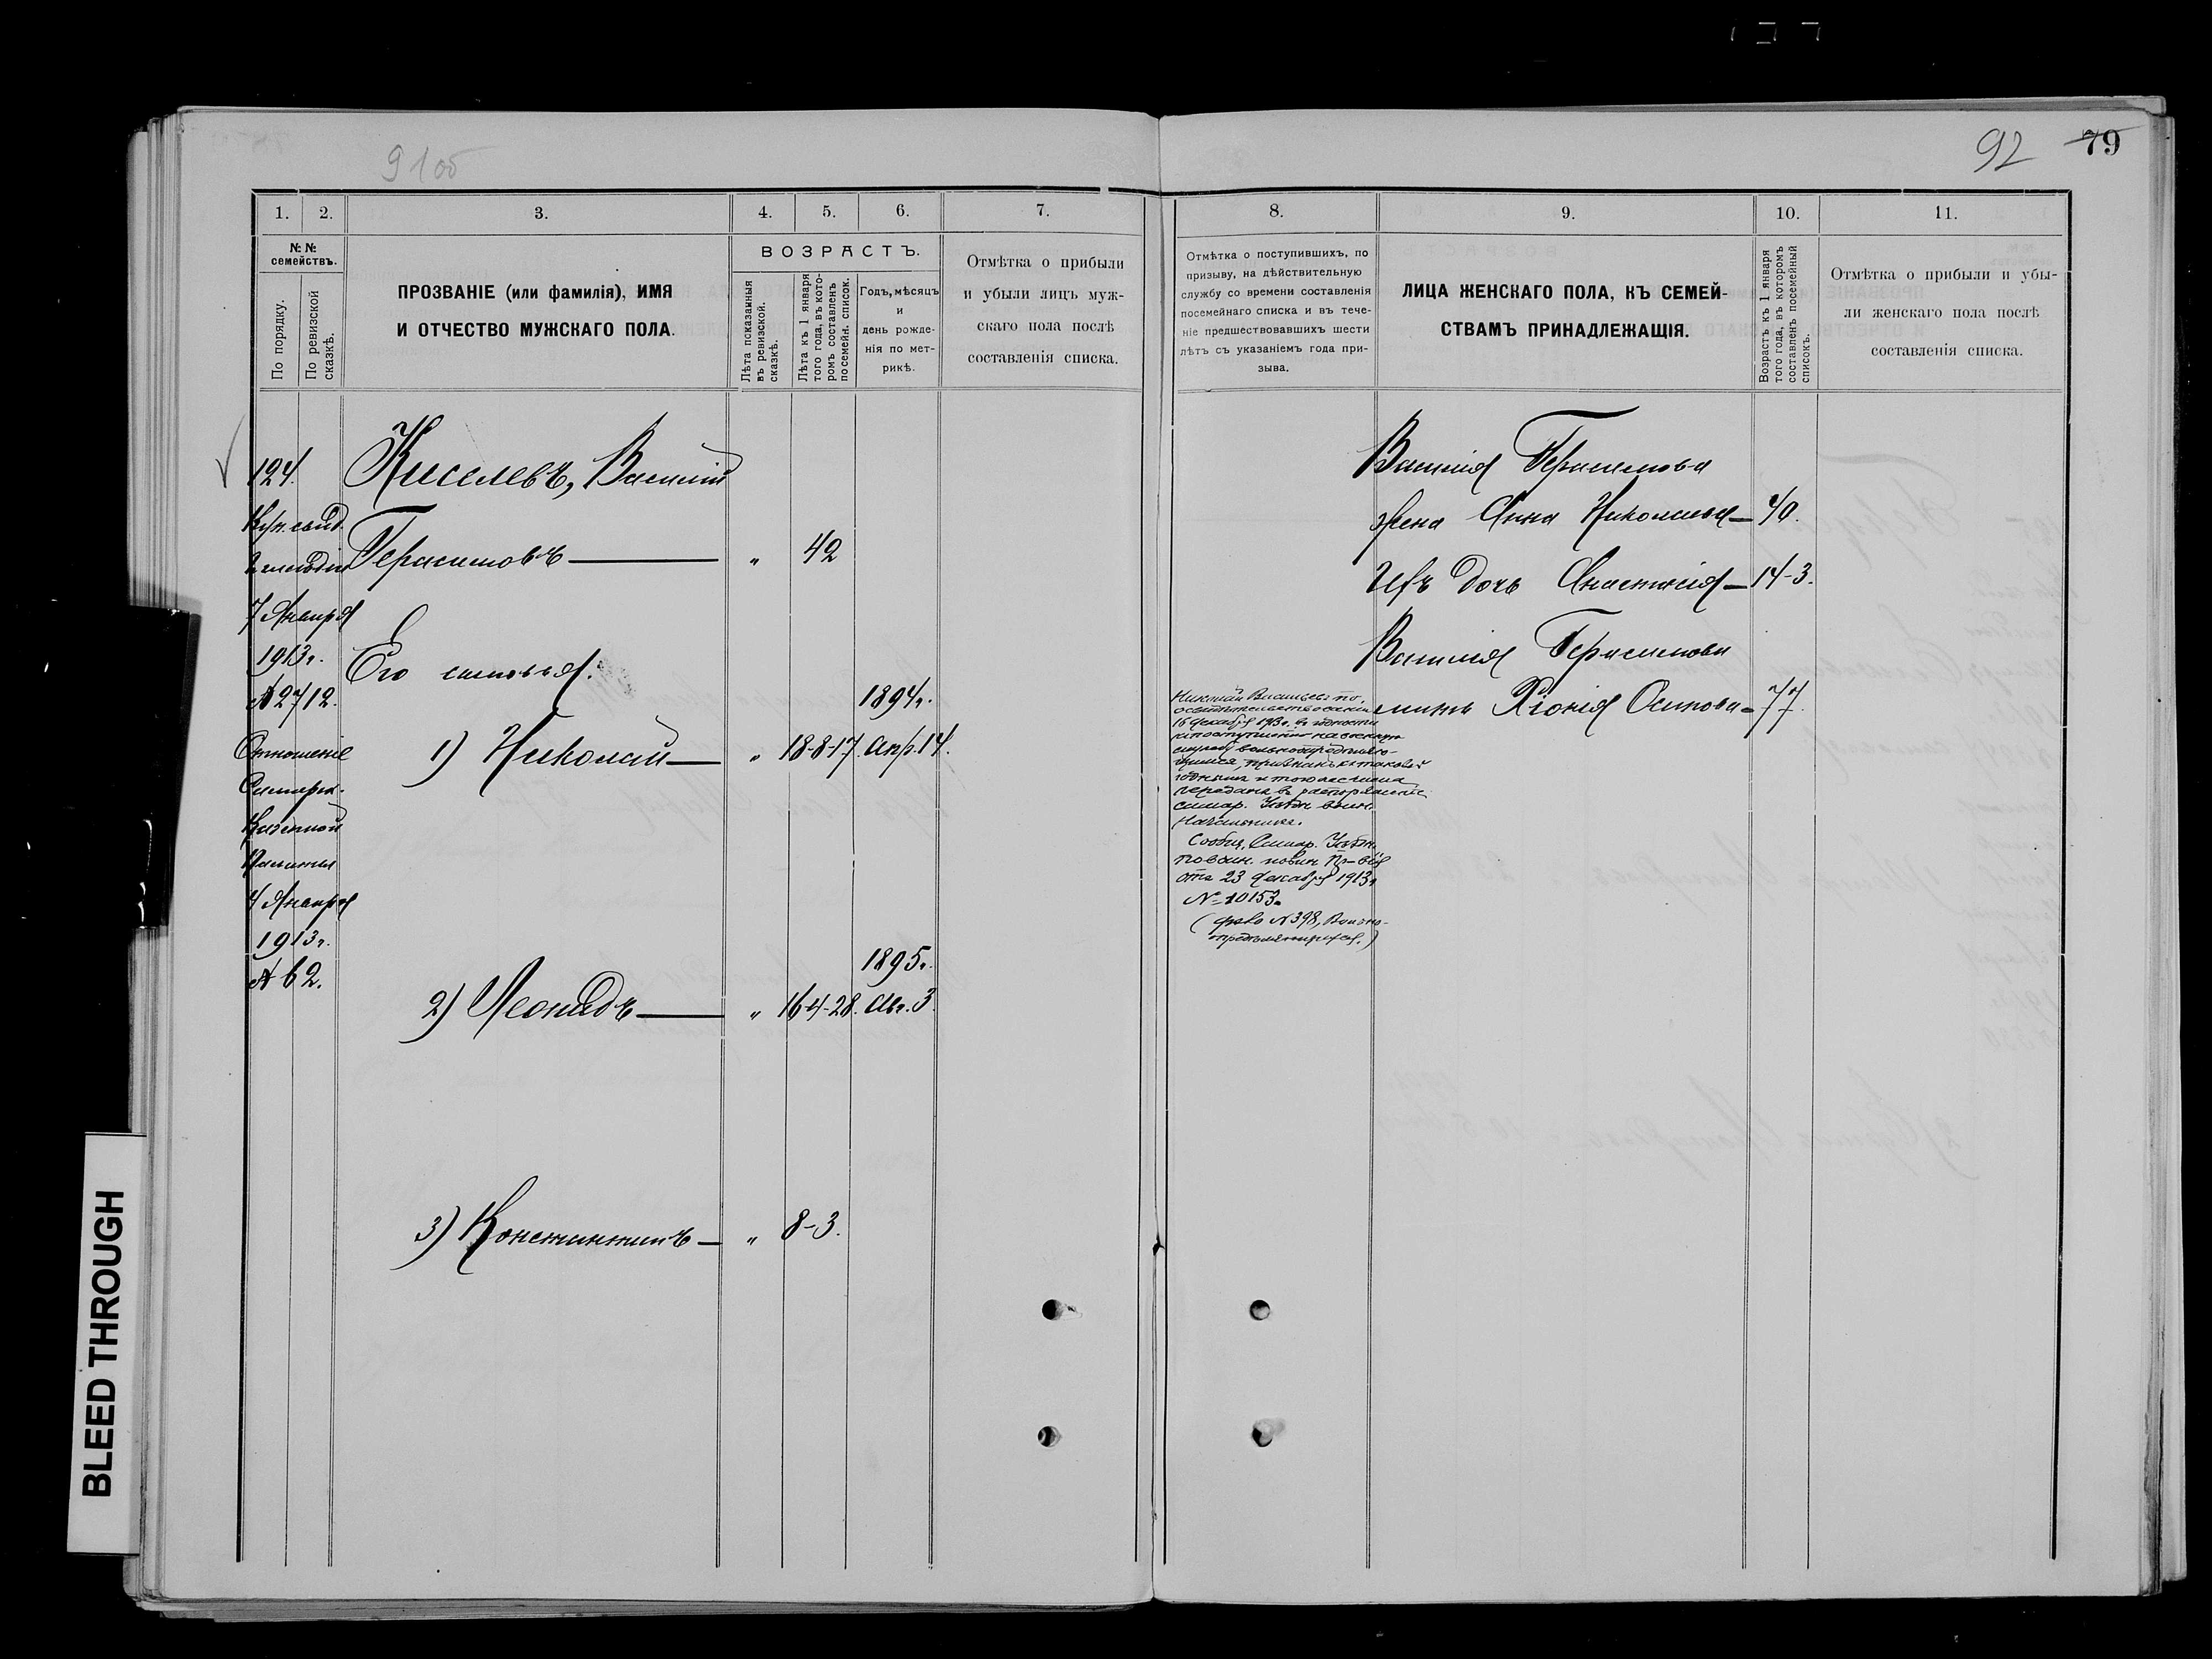 91об
92 79
1. 2. 3. 4. 5. 6. 7.
№№ семействъ.
По порядку.
По ревизской сказкѣ.
ПРОЗВАНІЕ (или фамилія), ИМЯ
И ОТЧЕСТВО МУЖСКАГО ПОЛА.
ВОЗРАСТЪ.
Лѣта показанныя
въ ревизской.
сказкѣ.
Лѣта къ 1 января
того года, въ кото-
ромъ составленъ
посемейн. список.
Годъ, мѣсяцъ
и
день рожде-
нія по мет-
рикѣ.
Отмѣтка о прибыли
и убыли лицъ муж-
скаго пола послѣ
составленія списка.
124.
Куп. свид.
2 гильдіи
7 Января
1913г.
№ 2712.
Отношеніе
Самарск.
Казенной
Палаты
4 Января
1913г.
№ 62.
Киселевъ, Василій
Герасимовъ — „ 42
Его сыновья:
1894г.
1) Николай — „ 18-8-17. Апр. 14.
1895г.
2) Леонидъ — „ 16-4-28. Авг. 3
3) Константинъ — „ 8-3.
8. 9. 10. 11.
Отмѣтка о поступившихъ, по
призыву, на дѣйствительную
службу со времени составленія
посемейнаго списка и въ тече-
ніе предшествовавшихъ шести
лѣтъ съ указаніемъ года при-
зыва.
ЛИЦА ЖЕНСКАГО ПОЛА, КЪ СЕМЕЙ-
СТВАМЪ ПРИНАДЛЕЖАЩІЯ.
Возрастъ къ 1 января
того года, въ которомъ
составленъ посемейный
списокъ.
Отмѣтка о прибыли и убы-
ли женскаго пола послѣ
составленія списка.
Николай Васильевъ по
освидѣтельствованіи
16 декабря 1913г. въ годности
къ поступленію на военную
службу вольноопредѣляю-
щимся, признанъ къ таковой
годнымъ и того же числа
переданъ въ распоряженіе
Самар. Уѣздн. воин.
Начальника.
Сообщ. Самар. Уѣздн.
по воин. повин. Пр-вія
отъ 23 декабря 1913г
№ 10153.
(дѣло № 398, Вольно-
опредѣляющихся.)
Василія Герасимова
жена Анна Николаева — 40.
Ихъ дочь Анастасія — 14-3.
Василія Герасимова
мать Хіонія Осипова — 77.
BLEED THROUGH